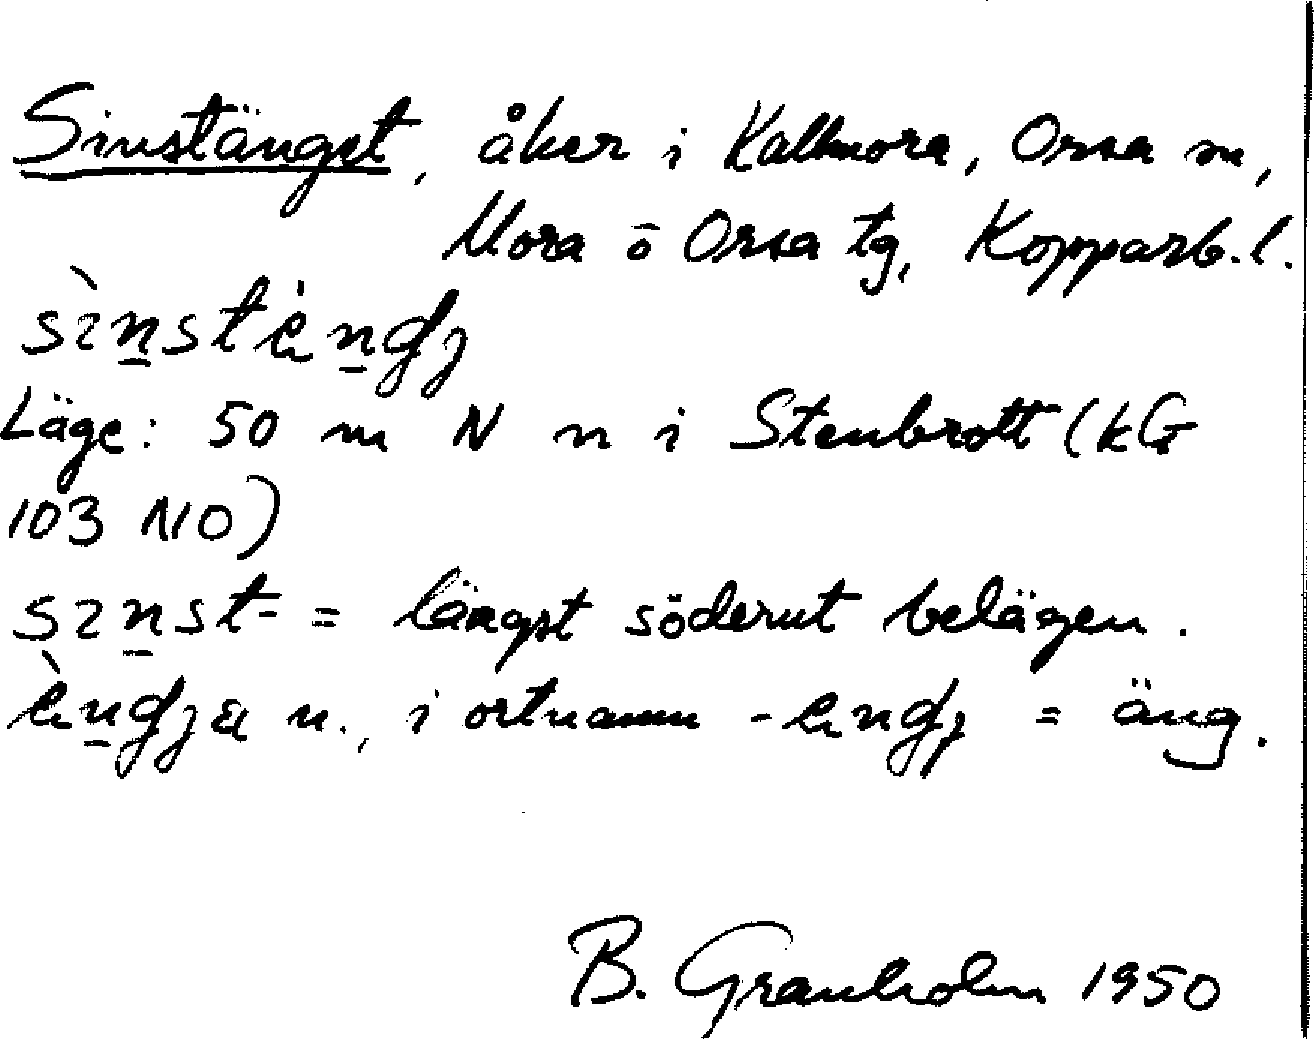 Sinstänget, åker i Kallmora, Orsa sn,
Mora o Orsa tg, Kopparb. l.
Läge: 50 m N n i Stenbrott (kG
103 NO)
= längst söderut belägen.
n., i ortnamn = äng.
B. Granholm 1950